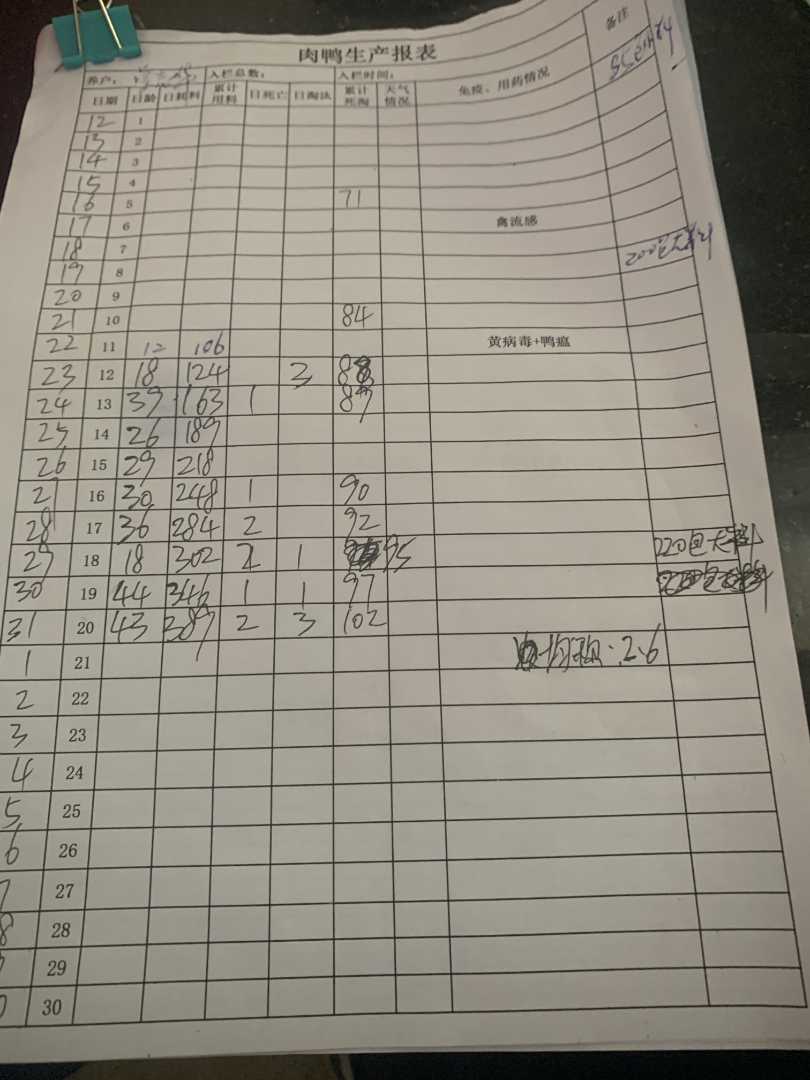 肉鸭生产报表
备注
养户： 入栏总数： 入栏时间：
日期 日龄 日耗料 累计用料 日死亡 日淘汰 累计死淘 天气情况 免疫、用药情况
12 1
13 2
14 3
15 4
16 5 71
17 6 禽流感
18 7
19 8
20 9
21 10 84
22 11 12 106 黄病毒+鸭瘟
23 12 18 124 3 88
24 13 39 163 1 89
25 14 26 189
26 15 29 218
27 16 30 248 1 90
28 17 36 284 2 92
29 18 18 302 2 1 95 220包大料
30 19 44 346 1 1 97
31 20 43 389 2 3 102
1 21 2.6
2 22
3 23
4 24
5 25
6 26
7 27
8 28
29
30